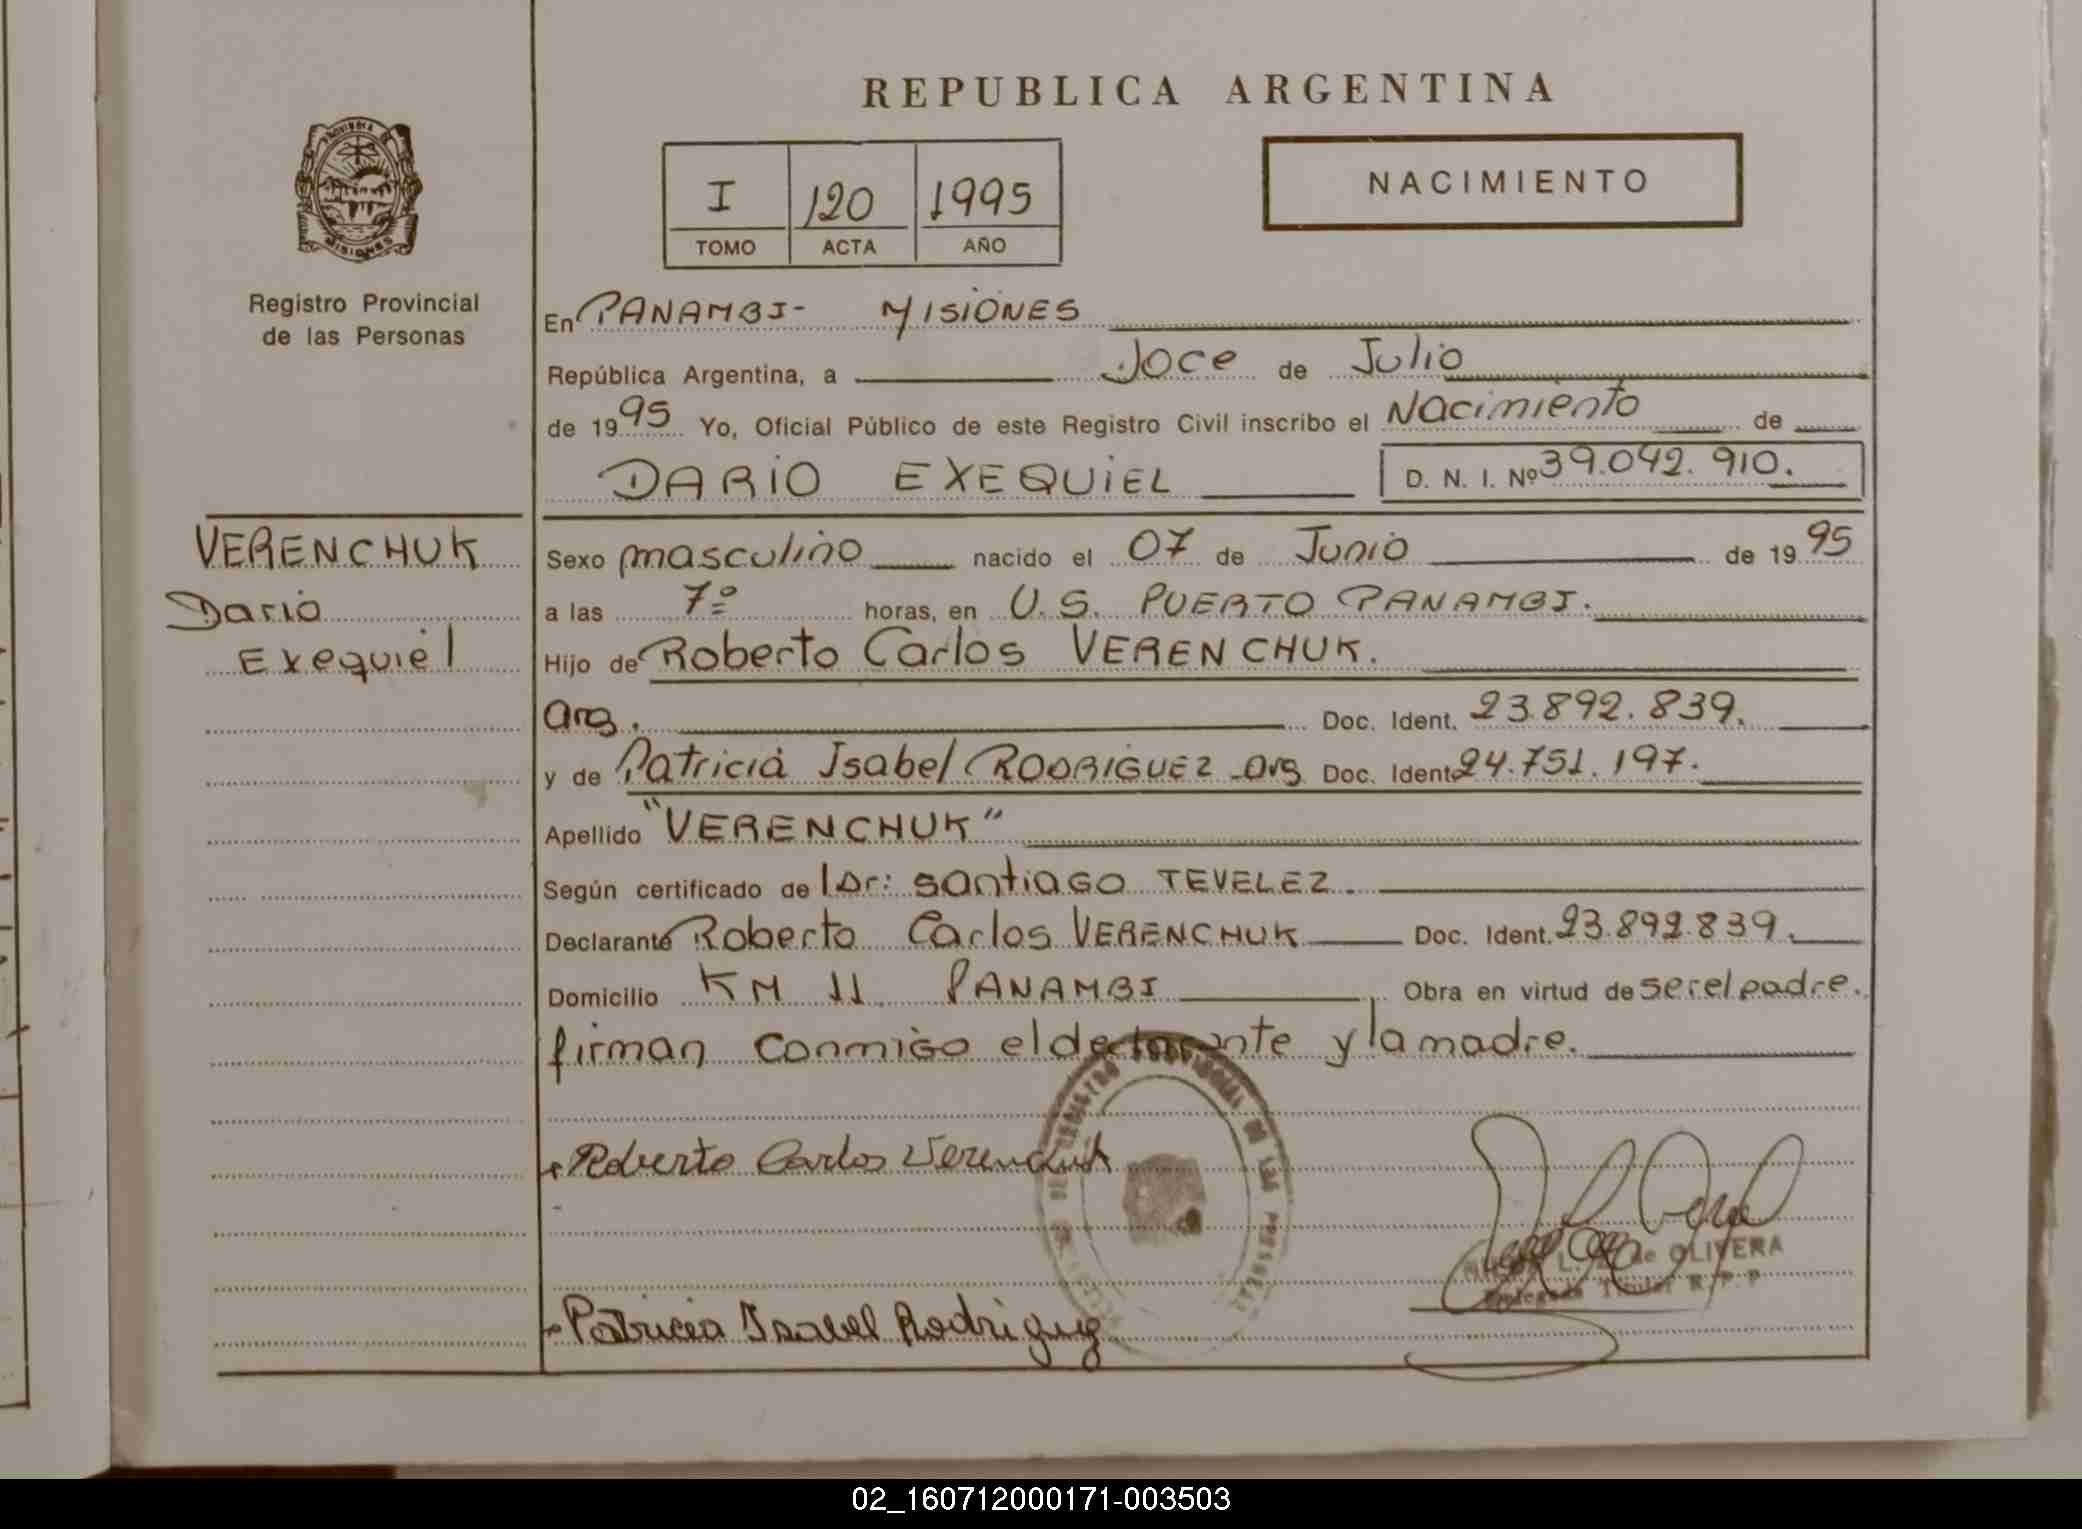 REPUBLICA ARGENTINA
PROVINCIA
MISIONES
I 120 1995
TOMO ACTA AÑO
NACIMIENTO
Registro Provincial
de las Personas
En PANAMBI- MISIONES
República Argentina, a Doce de Julio
de 1995 Yo, Oficial Público de este Registro Civil inscribo el Nacimiento de
DARIO EXEQUIEL D. N. I. Nº 39.042.910.
VERENCHUK
Dario
Exequiel
Sexo masculino nacido el 07 de Junio de 1995
a las 7º horas, en U.S. PUERTO PANAMBI.
Hijo de Roberto Carlos VERENCHUK.
arg. Doc. Ident. 23.892.839.
y de Patricia Isabel RODRIGUEZ arg Doc. Ident. 24.751.197.
Apellido "VERENCHUK"
Según certificado de Dr: santiago TEVELEZ.
Declarante Roberto Carlos VERENCHUK Doc. Ident. 23.892.839.
Domicilio KM 11 PANAMBI Obra en virtud de ser el padre.
firman conmigo el declarante y la madre.
Roberto Carlos Verenchuk
de OLIVERA
Delegada Titular R.P.P
Patricia Isabel Rodriguez
02_160712000171-003503